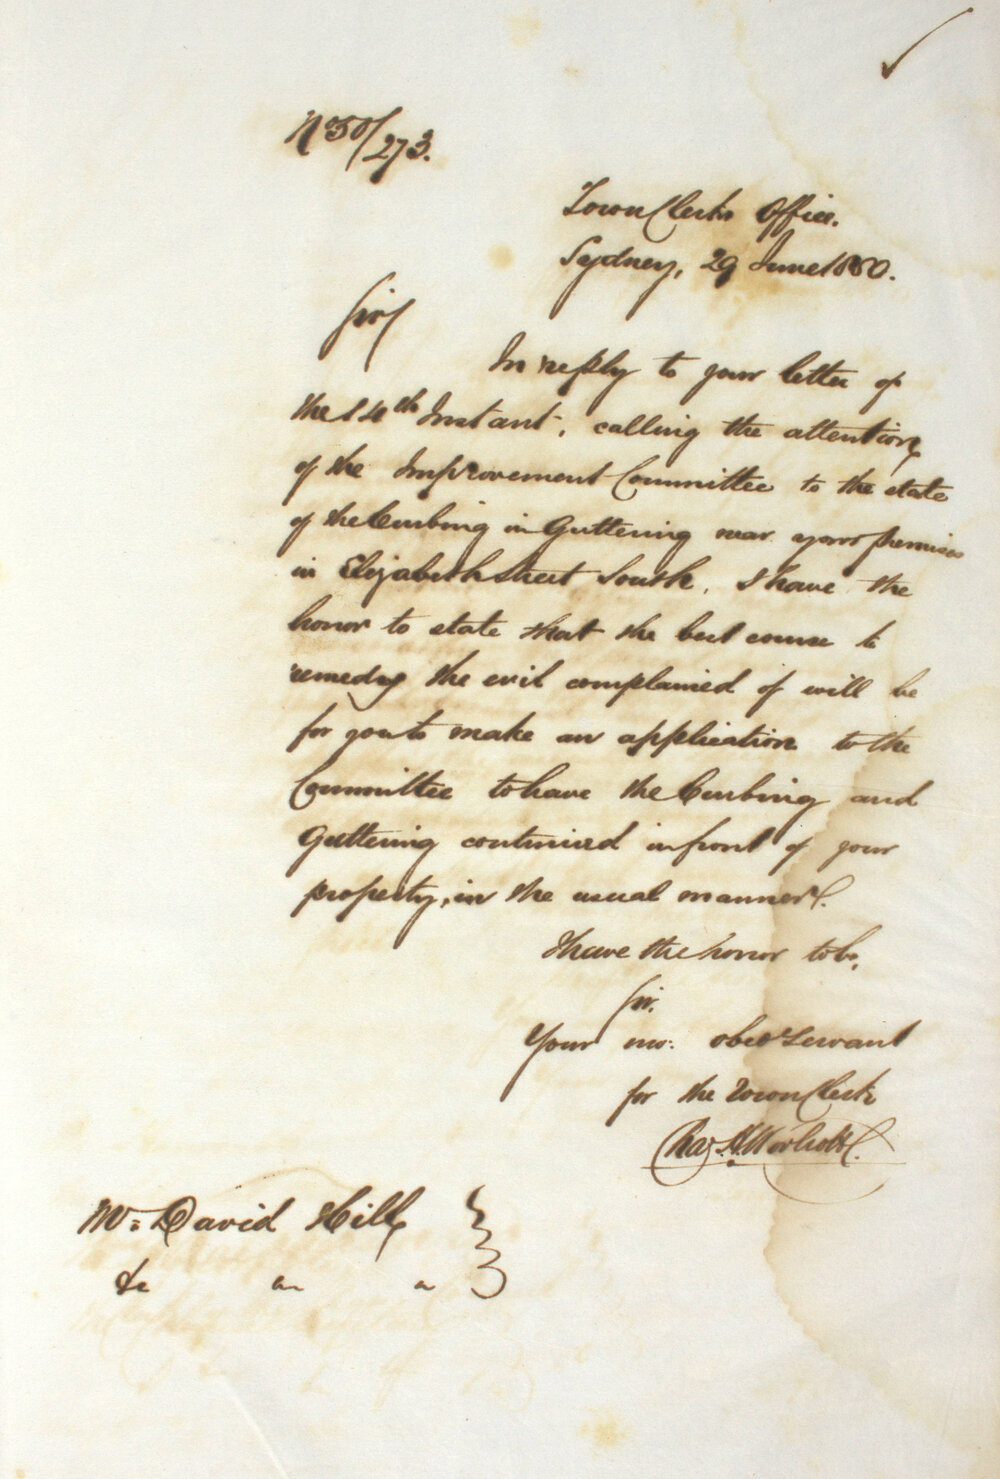 No 50/273.
Town Clerks Office.
Sydney, 29 June 1850.
Sir
In reply to your letter of
the 14th Instant, calling the attention
of the Improvement Committee to the state
of the Curbing in Guttering near your premises
in Elizabeth Street South, I have the
honor to state that the best course to
remedy the evil complained of will be
for you to make an application to the
Committee to have the Curbing and
Guttering continued in front of your
property, in the usual manner.
I have the honor to be,
Sir.
Your mo: obed Servant
for the Town Clerk
Chas. H.
Mr: David Hill
&c